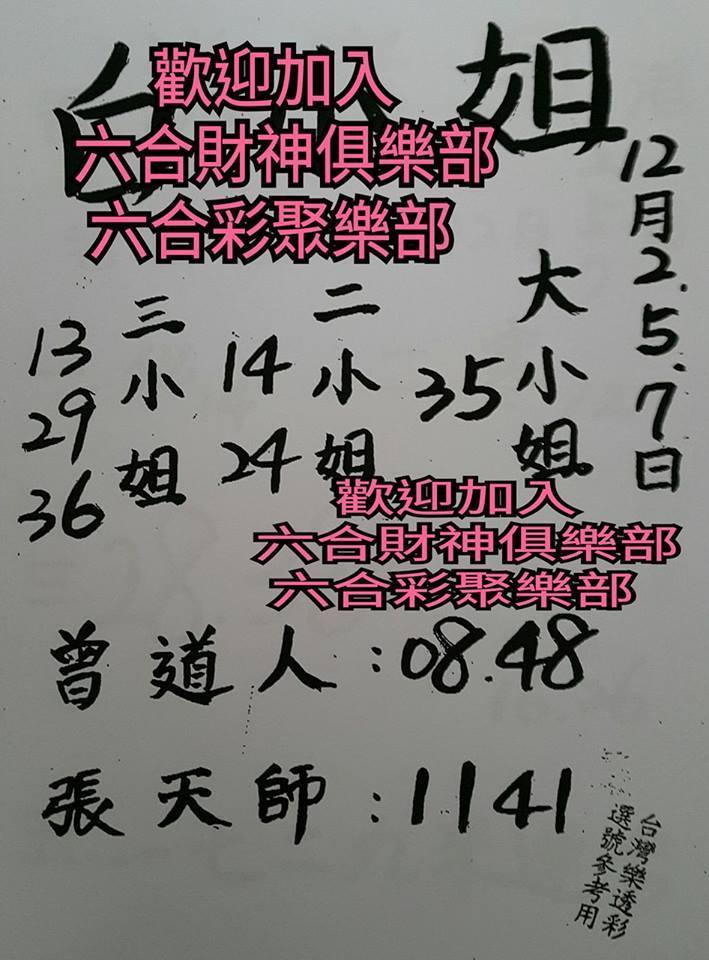 白小姐
歡迎加入
六合財神俱樂部
六合彩聚樂部
12月2.5.7日
大小姐
35
二小姐
14
24
三小姐
13
29
36
歡迎加入
六合財神俱樂部
六合彩聚樂部
曾道人:08.48
張天師:1141
台灣樂透彩
選號參考用